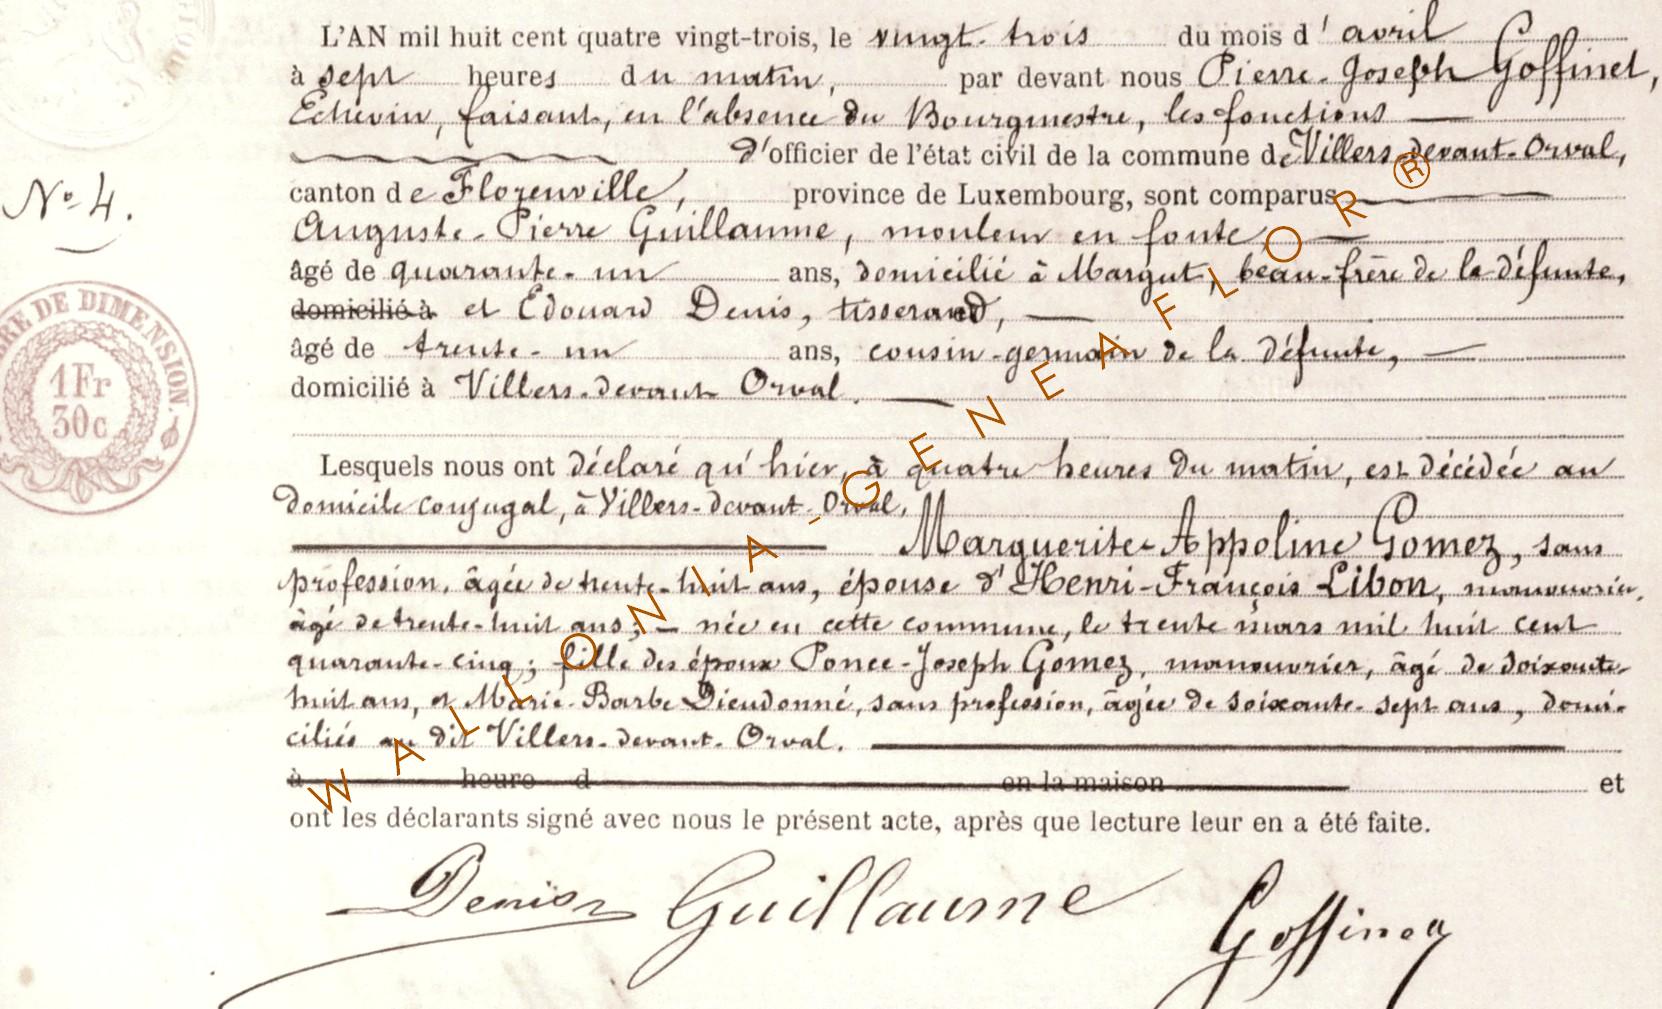 L'AN mil huit cent quatre vingt-trois, le vingt-trois du mois d'avril
à sept heures du matin, par devant nous Pierre-Joseph Goffinet,
Echevin, faisant, en l'absence du Bourgmestre, les fonctions
d'officier de l'état civil de la commune de Villers-devant-Orval,
canton de Florenville, province de Luxembourg, sont comparus
No 4.
Auguste-Pierre Guillaume, mouleur en fonte
âgé de quarante-un ans, domicilié à Margut, beau-frère de la défunte,
domicilié à et Edouard Denis, tisserand,
âgé de trente-un ans, cousin-germain de la défunte,
domicilié à Villers-devant Orval.
TIMBRE DE DIMENSION.
1Fr
30c
Lesquels nous ont déclaré qu'hier, à quatre heures du matin, est décédée au
domicile conjugal, à Villers-devant-Orval,
Marguerite-Appoline Gomez, sans
profession, âgée de trente-huit ans, épouse d'Henri-François Libon, manouvrier,
âgé de trente-huit ans; née en cette commune, le trente mars mil huit cent
quarante-cinq; fille des époux Ponce-Joseph Gomez, manouvrier, âgé de soixante-
huit ans, et Marie-Barbe Dieudonné, sans profession, âgée de soixante-sept ans, domi-
ciliés au dit Villers-devant-Orval.
à heure d en la maison et
ont les déclarants signé avec nous le présent acte, après que lecture leur en a été faite.
Denis Guillaume Goffinet
WALLONIA-GENEAFLOR®